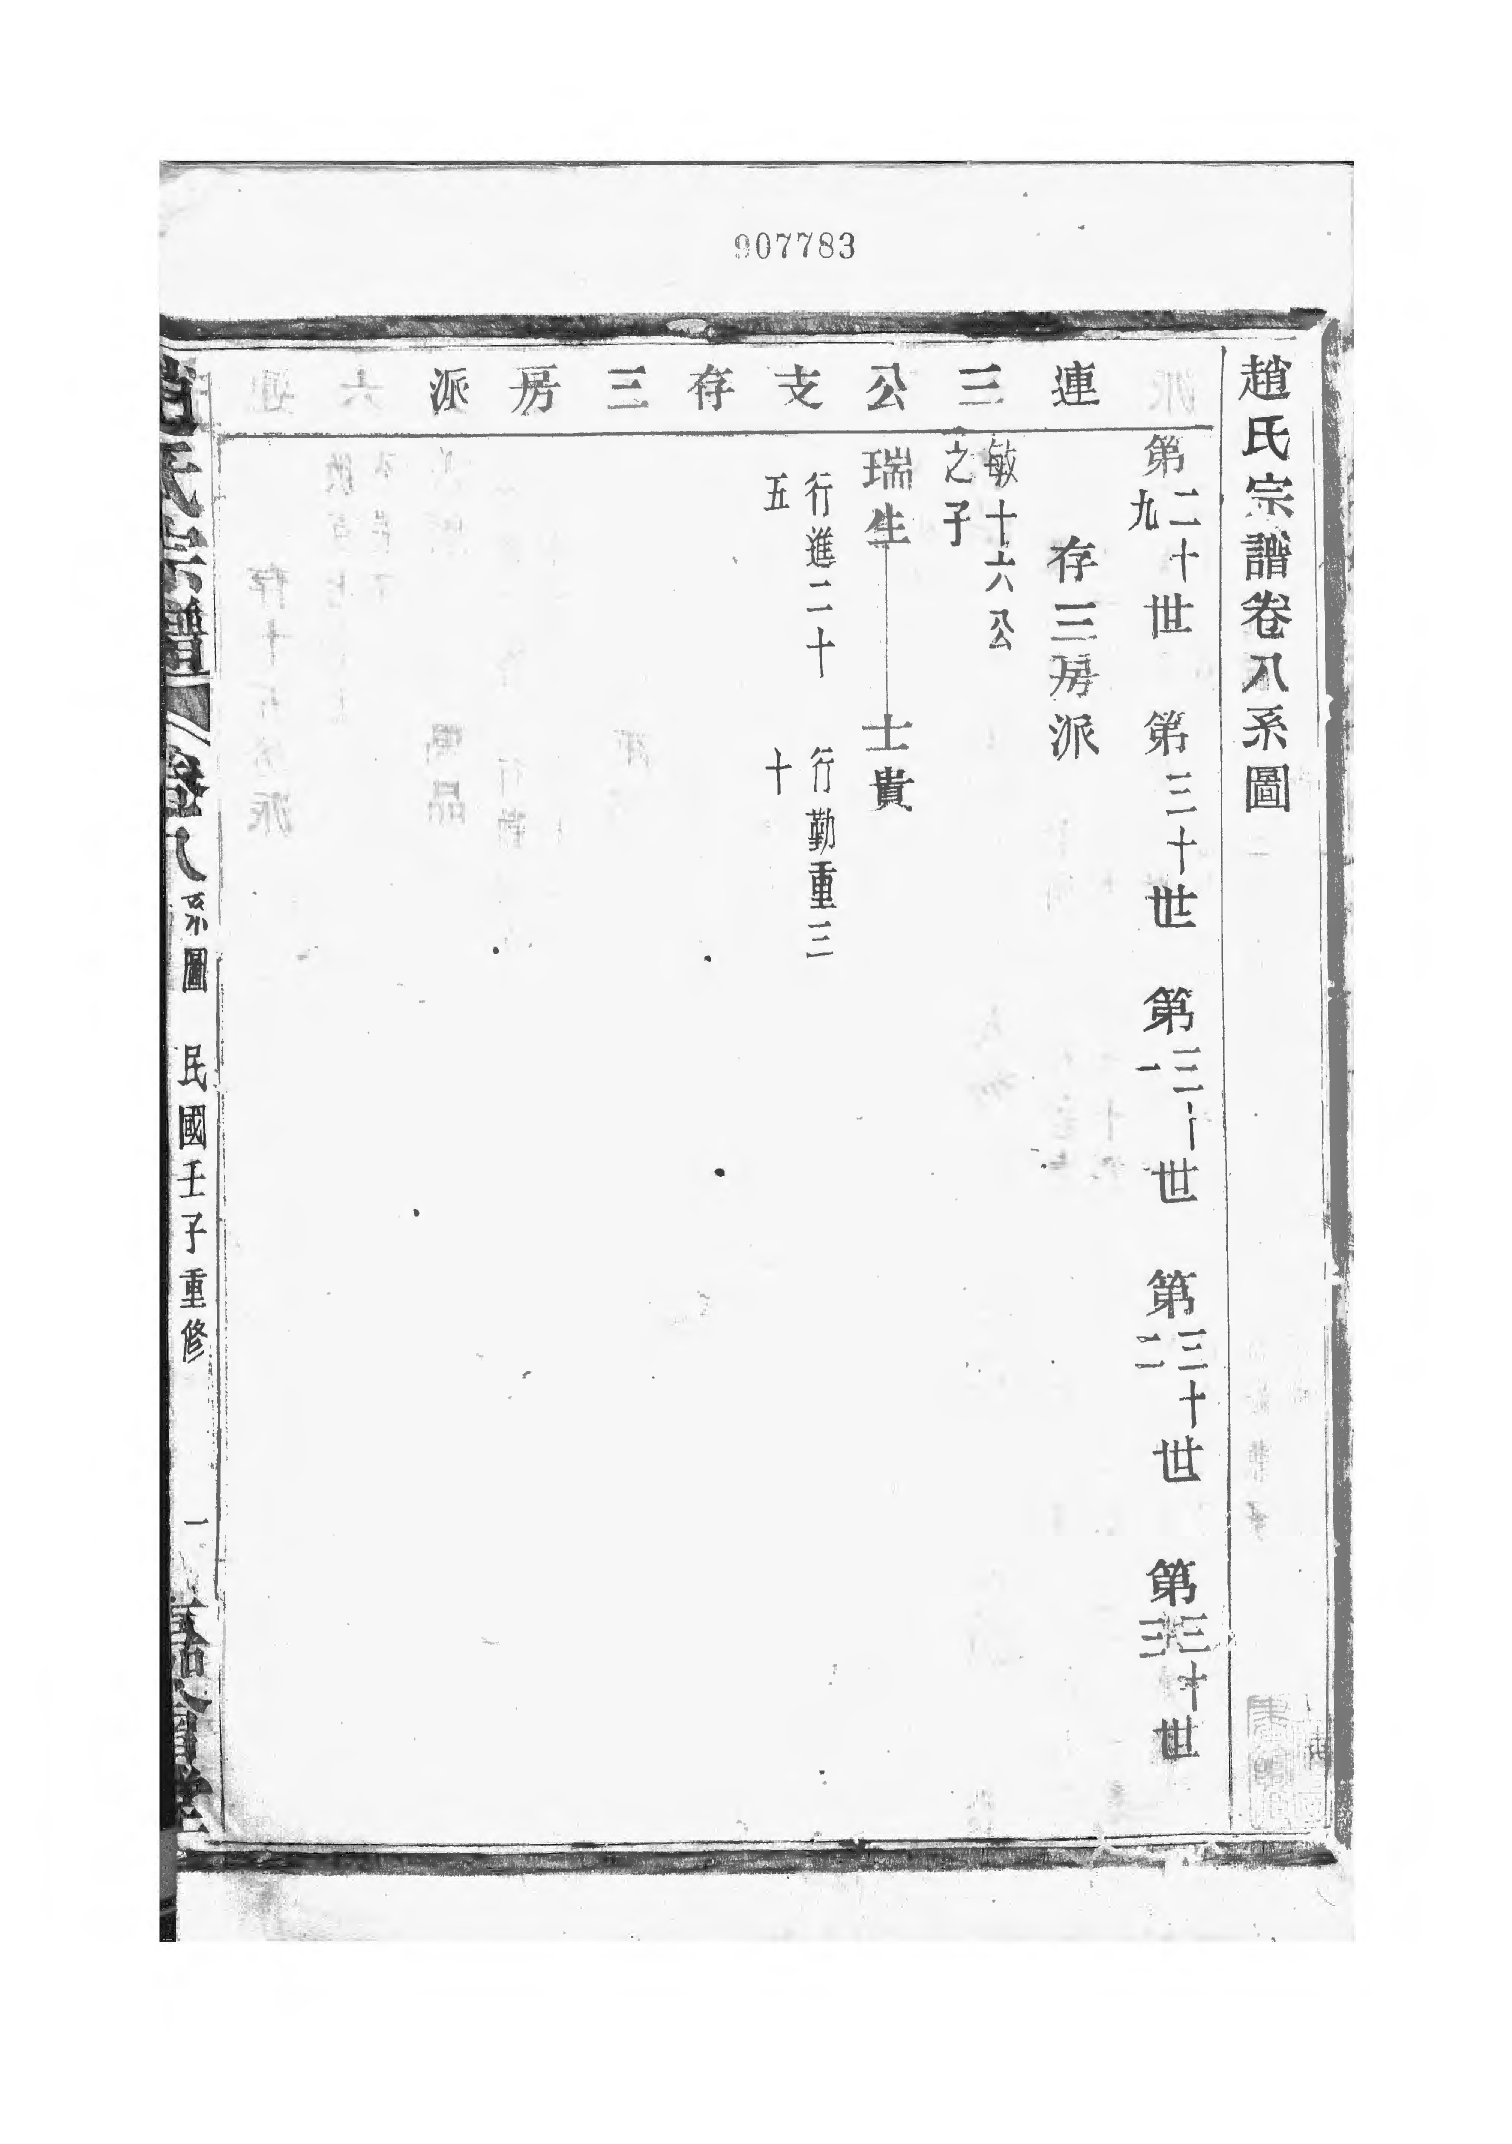 907783
趙氏宗譜卷八系圖
連三公支存三房派
第二十九世 第三十世 第三十一世 第三十二世 第三十三世
存三房派
敏十六公
之子
瑞生 士貴
行進二十 行勤重三
五 十
趙氏宗譜 卷八 系圖 民國壬子重修 一